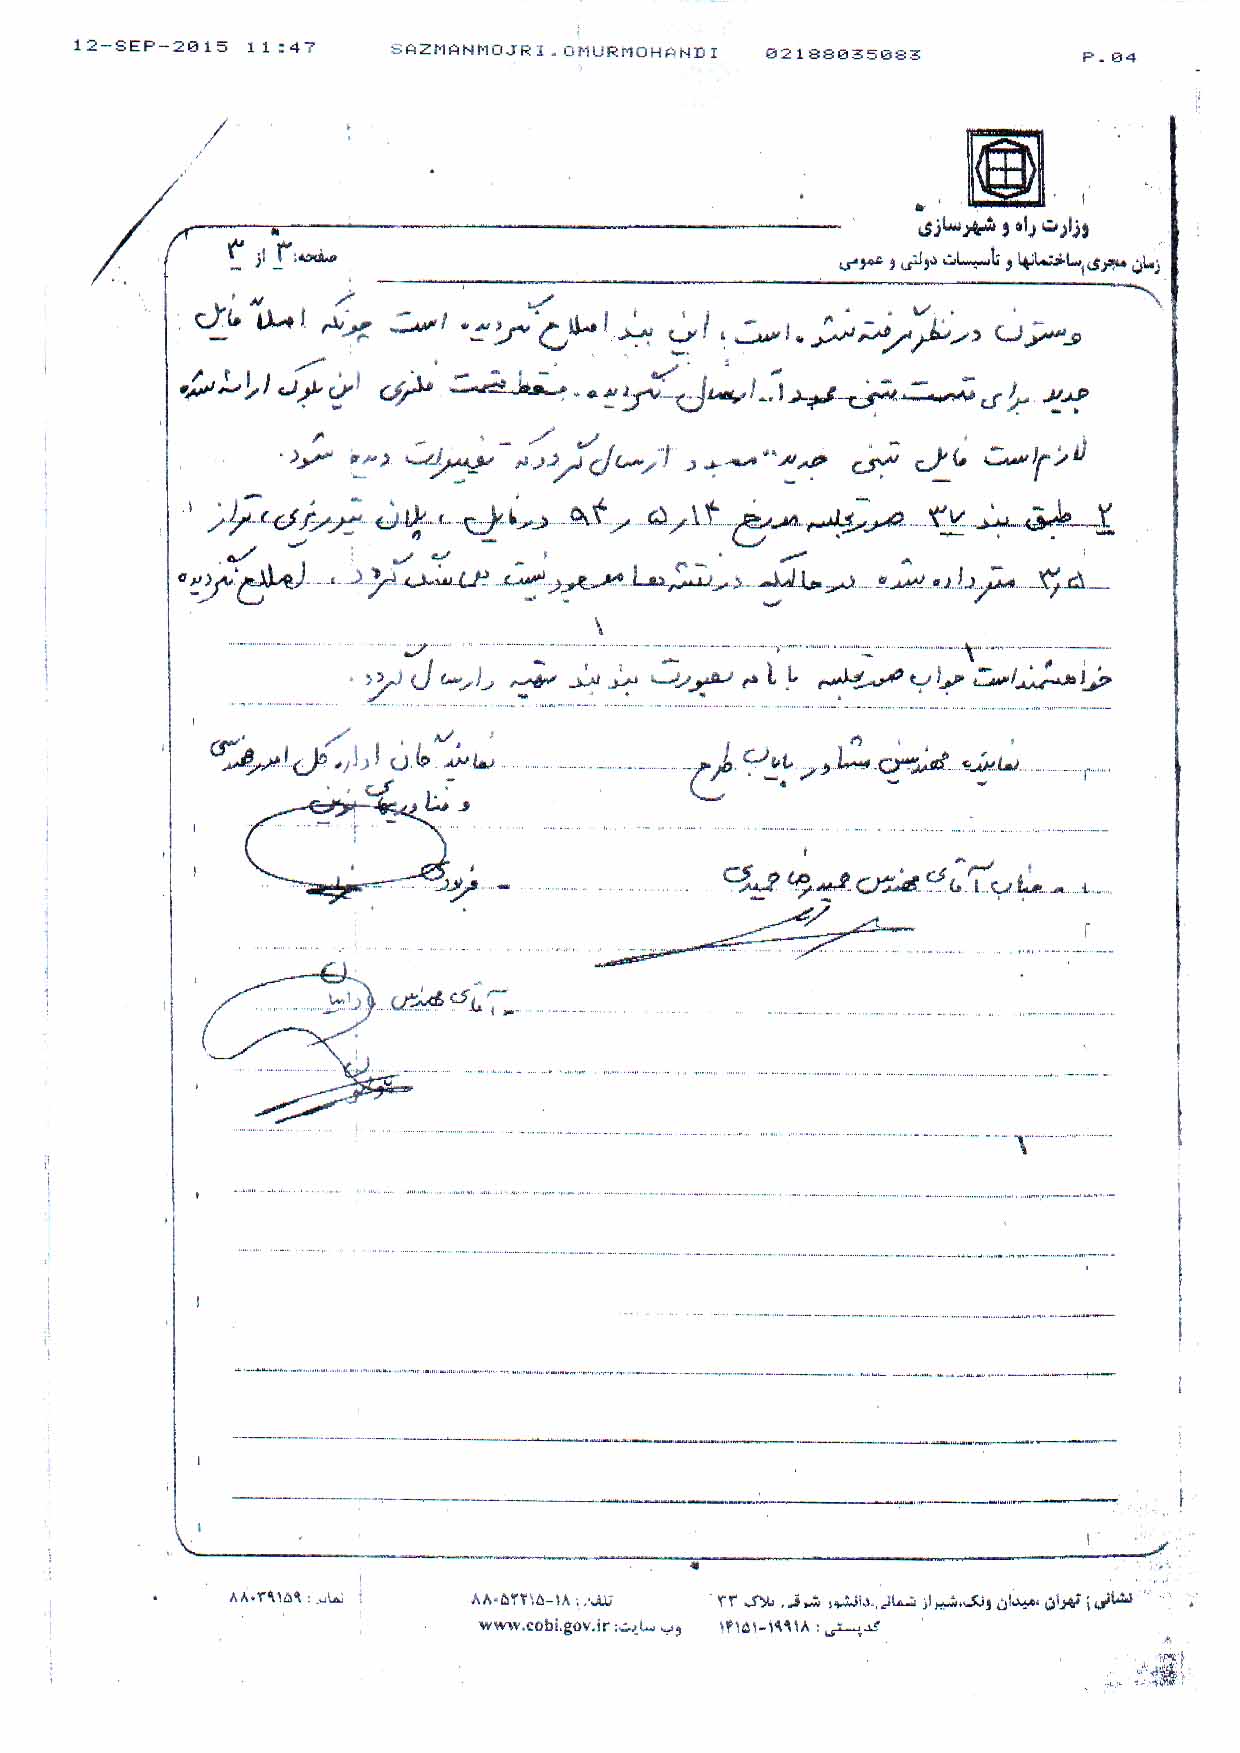 12-SEP-2015 11:47 SAZMANMOJRI.OMURMOHANDI 02188035083 P.04
وزارت راه و شهرسازی
زمان مجری ساختمانها و تأسیسات دولتی و عمومی
صفحه: ۳ از ۳
وستون در نظر گرفته نشده است، این بند اصلاح نگردیده است چونکه اصلاً فایل
جدید برای قسمت بتنی مجدداً ارسال نگردیده. فقط قسمت فلزی این بلوک ارائه شده
لازم است فایل بتنی جدید ارسال گردد که تغییرات دیده شود.
۲ طبق بند ۳۷ صورتجلسه مورخ ۹۴/۵/۱۴ در فایل، پلان تیرریزی، تراز
۳,۵ متر داده شده در حالیکه در نقشه ها موجود نیست می گردد، اصلاح نگردیده
خواهشمند است جواب صورتجلسه با نامه بصورت بند بند تهیه و ارسال گردد.
نماینده مهندس مشاور پایاب طرح
نمایندگان اداره کل امور مهندسی
و فناوریهای نوین
- جناب آقای مهندس حمیدرضا حمیدی
-
- آقای مهندس
نشانی: تهران، میدان ونک، شیراز شمالی، دانشور شرقی، پلاک ۲۳ تلفن: ۱۸-۸۸۰۵۲۲۱۵ نمابر: ۸۸۰۳۹۱۵۹
کدپستی: ۱۹۹۱۸-۱۴۱۵۱ وب سایت: www.cobi.gov.ir